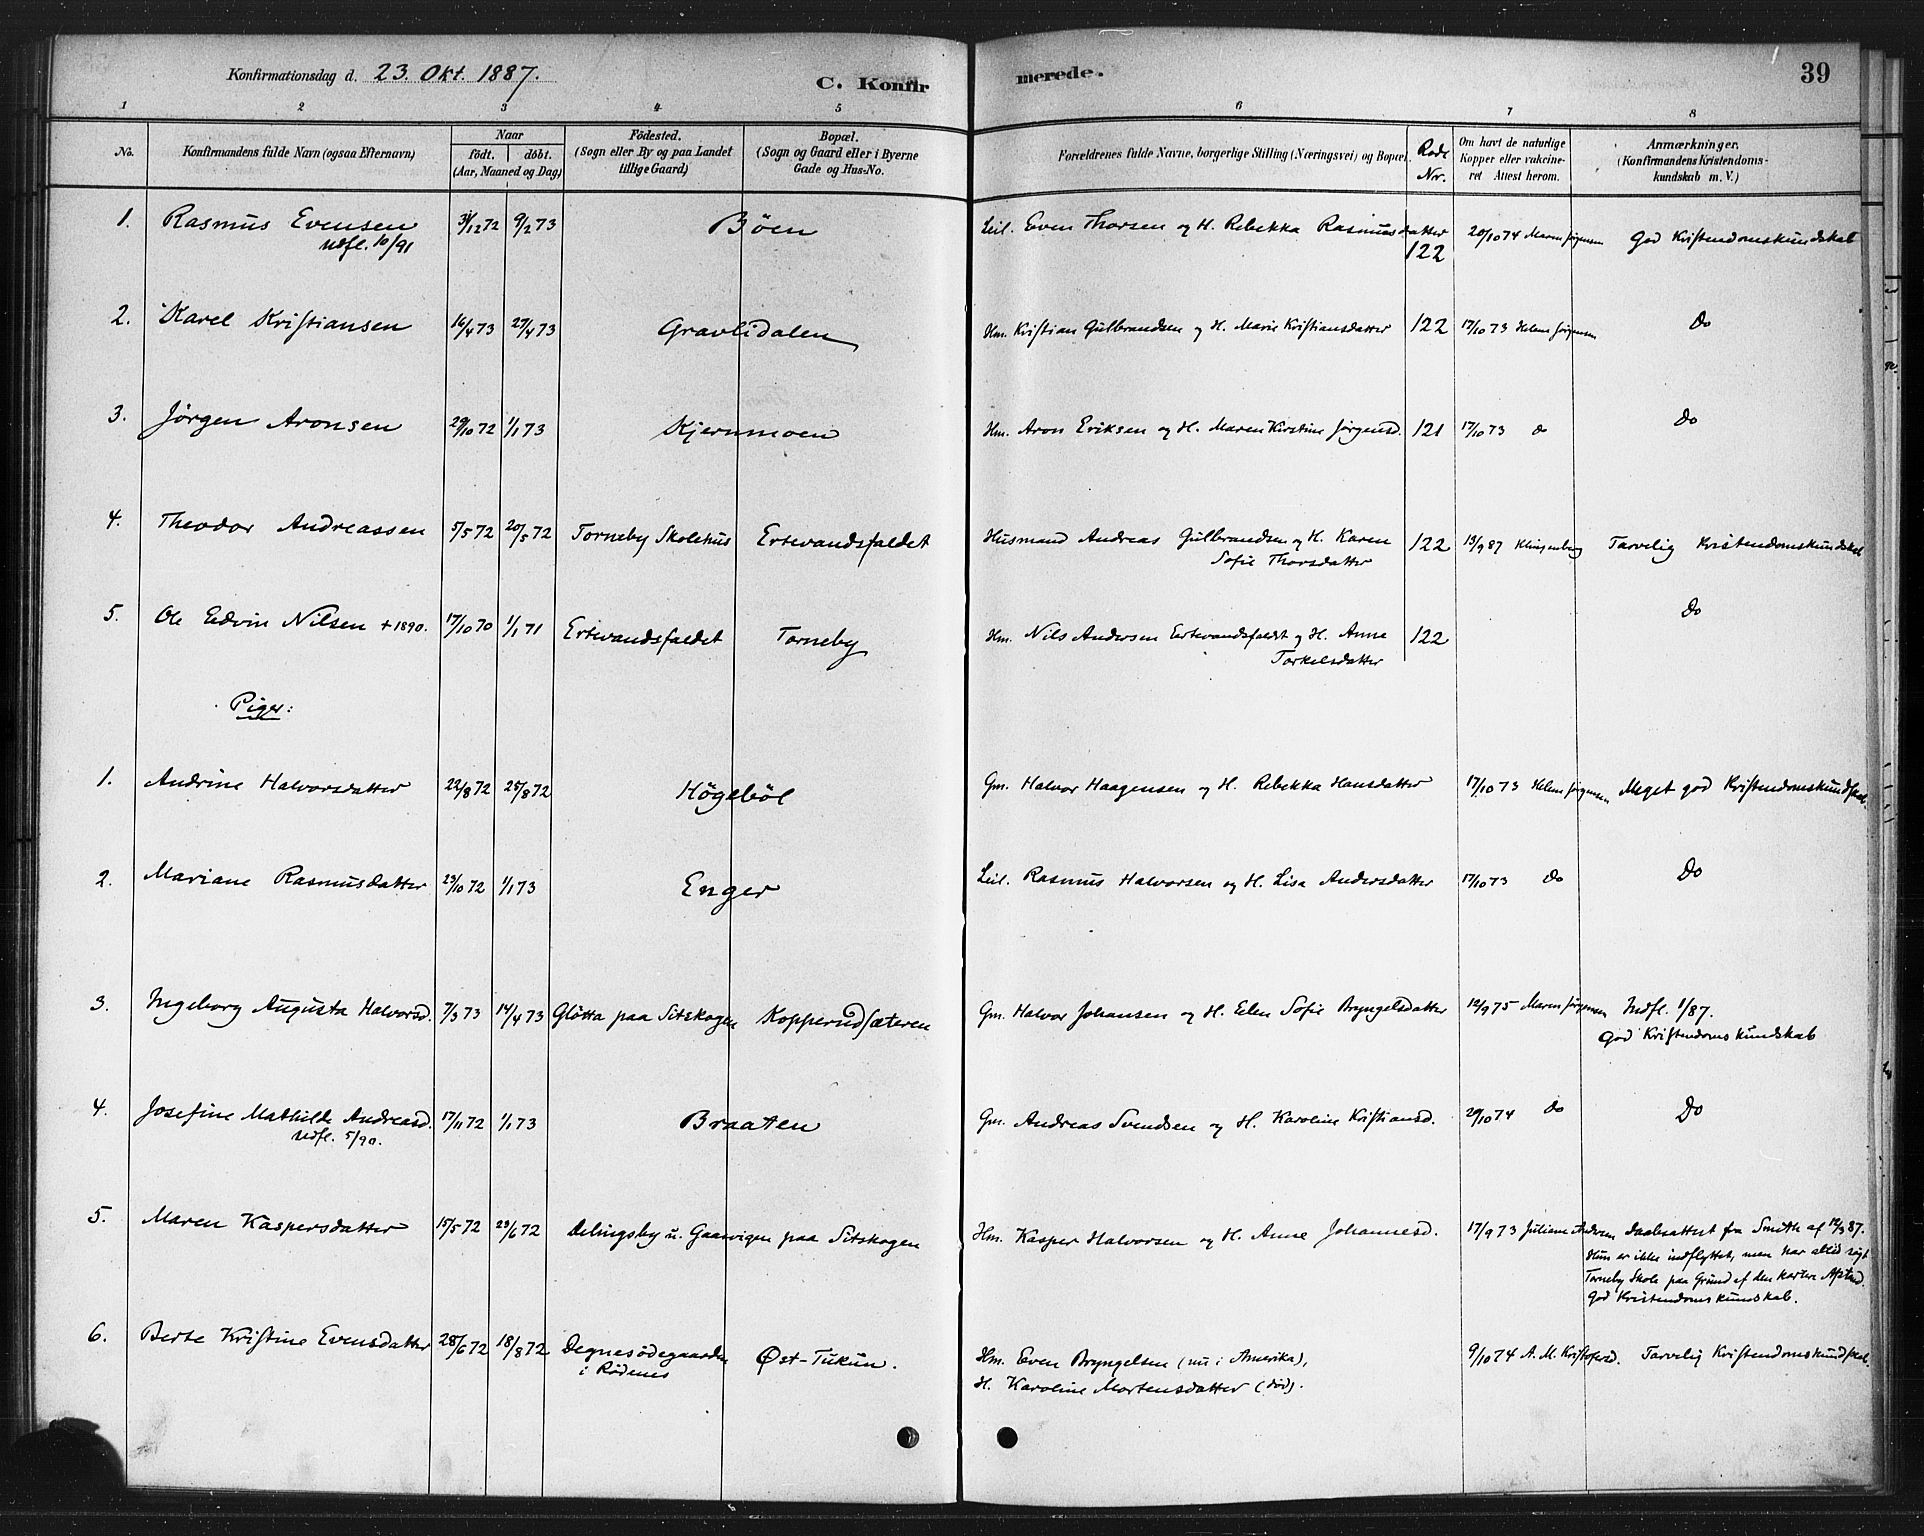 Konfirmationsdag d. 23. Okt. 1887. C. Konfir merede. 39
1 2 3 4 5 6 7 8
No. Konfirmandens fulde Navn (ogsaa Efternavn) Naar födt. döbt. (Aar, Maaned og Dag) Födested. (Sogn eller By og paa Landet tillige Gaard) Bopæl. (Sogn og Gaard eller i Byerne Gade og Hus-No. Forældrenes fulde Navne, borgerlige Stilling (Næringsvei) og Bopæl. Rode Nr. Om havt de naturlige Kopper eller vakcineret Attest herom. Anmærkninger. (Konfirmandens Kristendomskundskab m. V.)
1. Rasmus Evensen 31/12 72 9/2 73 Böen Leil. Even Thorsen og H. Rebekka Rasmusdatter 20/10 74 Maren Jørgensen God Kristendomskundskab
Udfl. 10/91 122
2. Karel Kristiansen 16/4 73 27/4 73 Gravlidalen Hm. Kristian Gulbrandsen og H. Marie Kristiansdatter 122 17/10 73 Helene Jørgensen Do
3. Jörgen Aronsen 29/10 72 1/1 73 Kjernmoen Hm. Aron Eriksen og H. Maren Kirstine Jørgensd. 121 17/10 73 do Do
4. Theodor Andreassen 5/5 72 20/5 72 Torneby Skolehus Ertevandsfaldet Husmand Andreas Gulbrandsen og H. Karen 122 13/9 87 Klingenberg Tarvelig Kristendomskundskab
Sofie Thorsdatter
5. Ole Edvin Nilsen +1890. 17/10 70 1/1 71 Ertevandsfaldet Torneby Hm. Nils Andersen Ertevandsfaldet og H. Anne 122 Do
Torkelsdatter
Piger:
1. Andrine Halvorsdatter 22/8 72 25/8 72 Högeböl Gm. Halvor Haagensen og H. Rebekka Hansdatter 17/10 73 Helene Jørgensen Meget god Kristendomskundskab.
2. Mariane Rasmusdatter 23/10 72 1/1 73 Enger Leil. Rasmus Halvorsen og H. Lisa Andersdatter 17/10 73 do Do
3. Ingeborg Augusta Halvorsd. 7/3 73 14/4 73 Glötta paa Sitskogen Kopperudsæteren Gm. Halvor Johansen og H. Elen Sofie Bryngelsdatter 12/9 75 Maren Jørgensen Indfl. 1/87.
God Kristendomskundskab
4. Josefine Mathilde Andreasd. 17/11 72 1/1 73 Braaten Gm. Andreas Svendsen og H. Karoline Kristiansd. 20/10 74 do Do
Udfl. 5/90.
5. Maren Kaspersdatter 15/5 72 23/6 72 Delingsby u. Gaasvigen paa Sitskogen Hm. Kasper Halvorsen og H. Anne Johannesd. 17/9 73 Juliane Andersen Daabsattest fra Smith af 12/3 87.
Hun er ikke indflyttet, men har altid søgt
Torneby Skole paa Grund af den kortere Afstand.
God Kristendomskundskab.
6. Berte Kristine Evensdatter 28/6 72 18/8 72 Degnesödegaarden Øst-Tukun. Hm. Even Bryngelsen (nu i Amerika), 9/10 74 A. M. Kristofersd. Tarvelig Kristendomskundskab.
i Rödenes H. Karoline Mortensdatter (död).